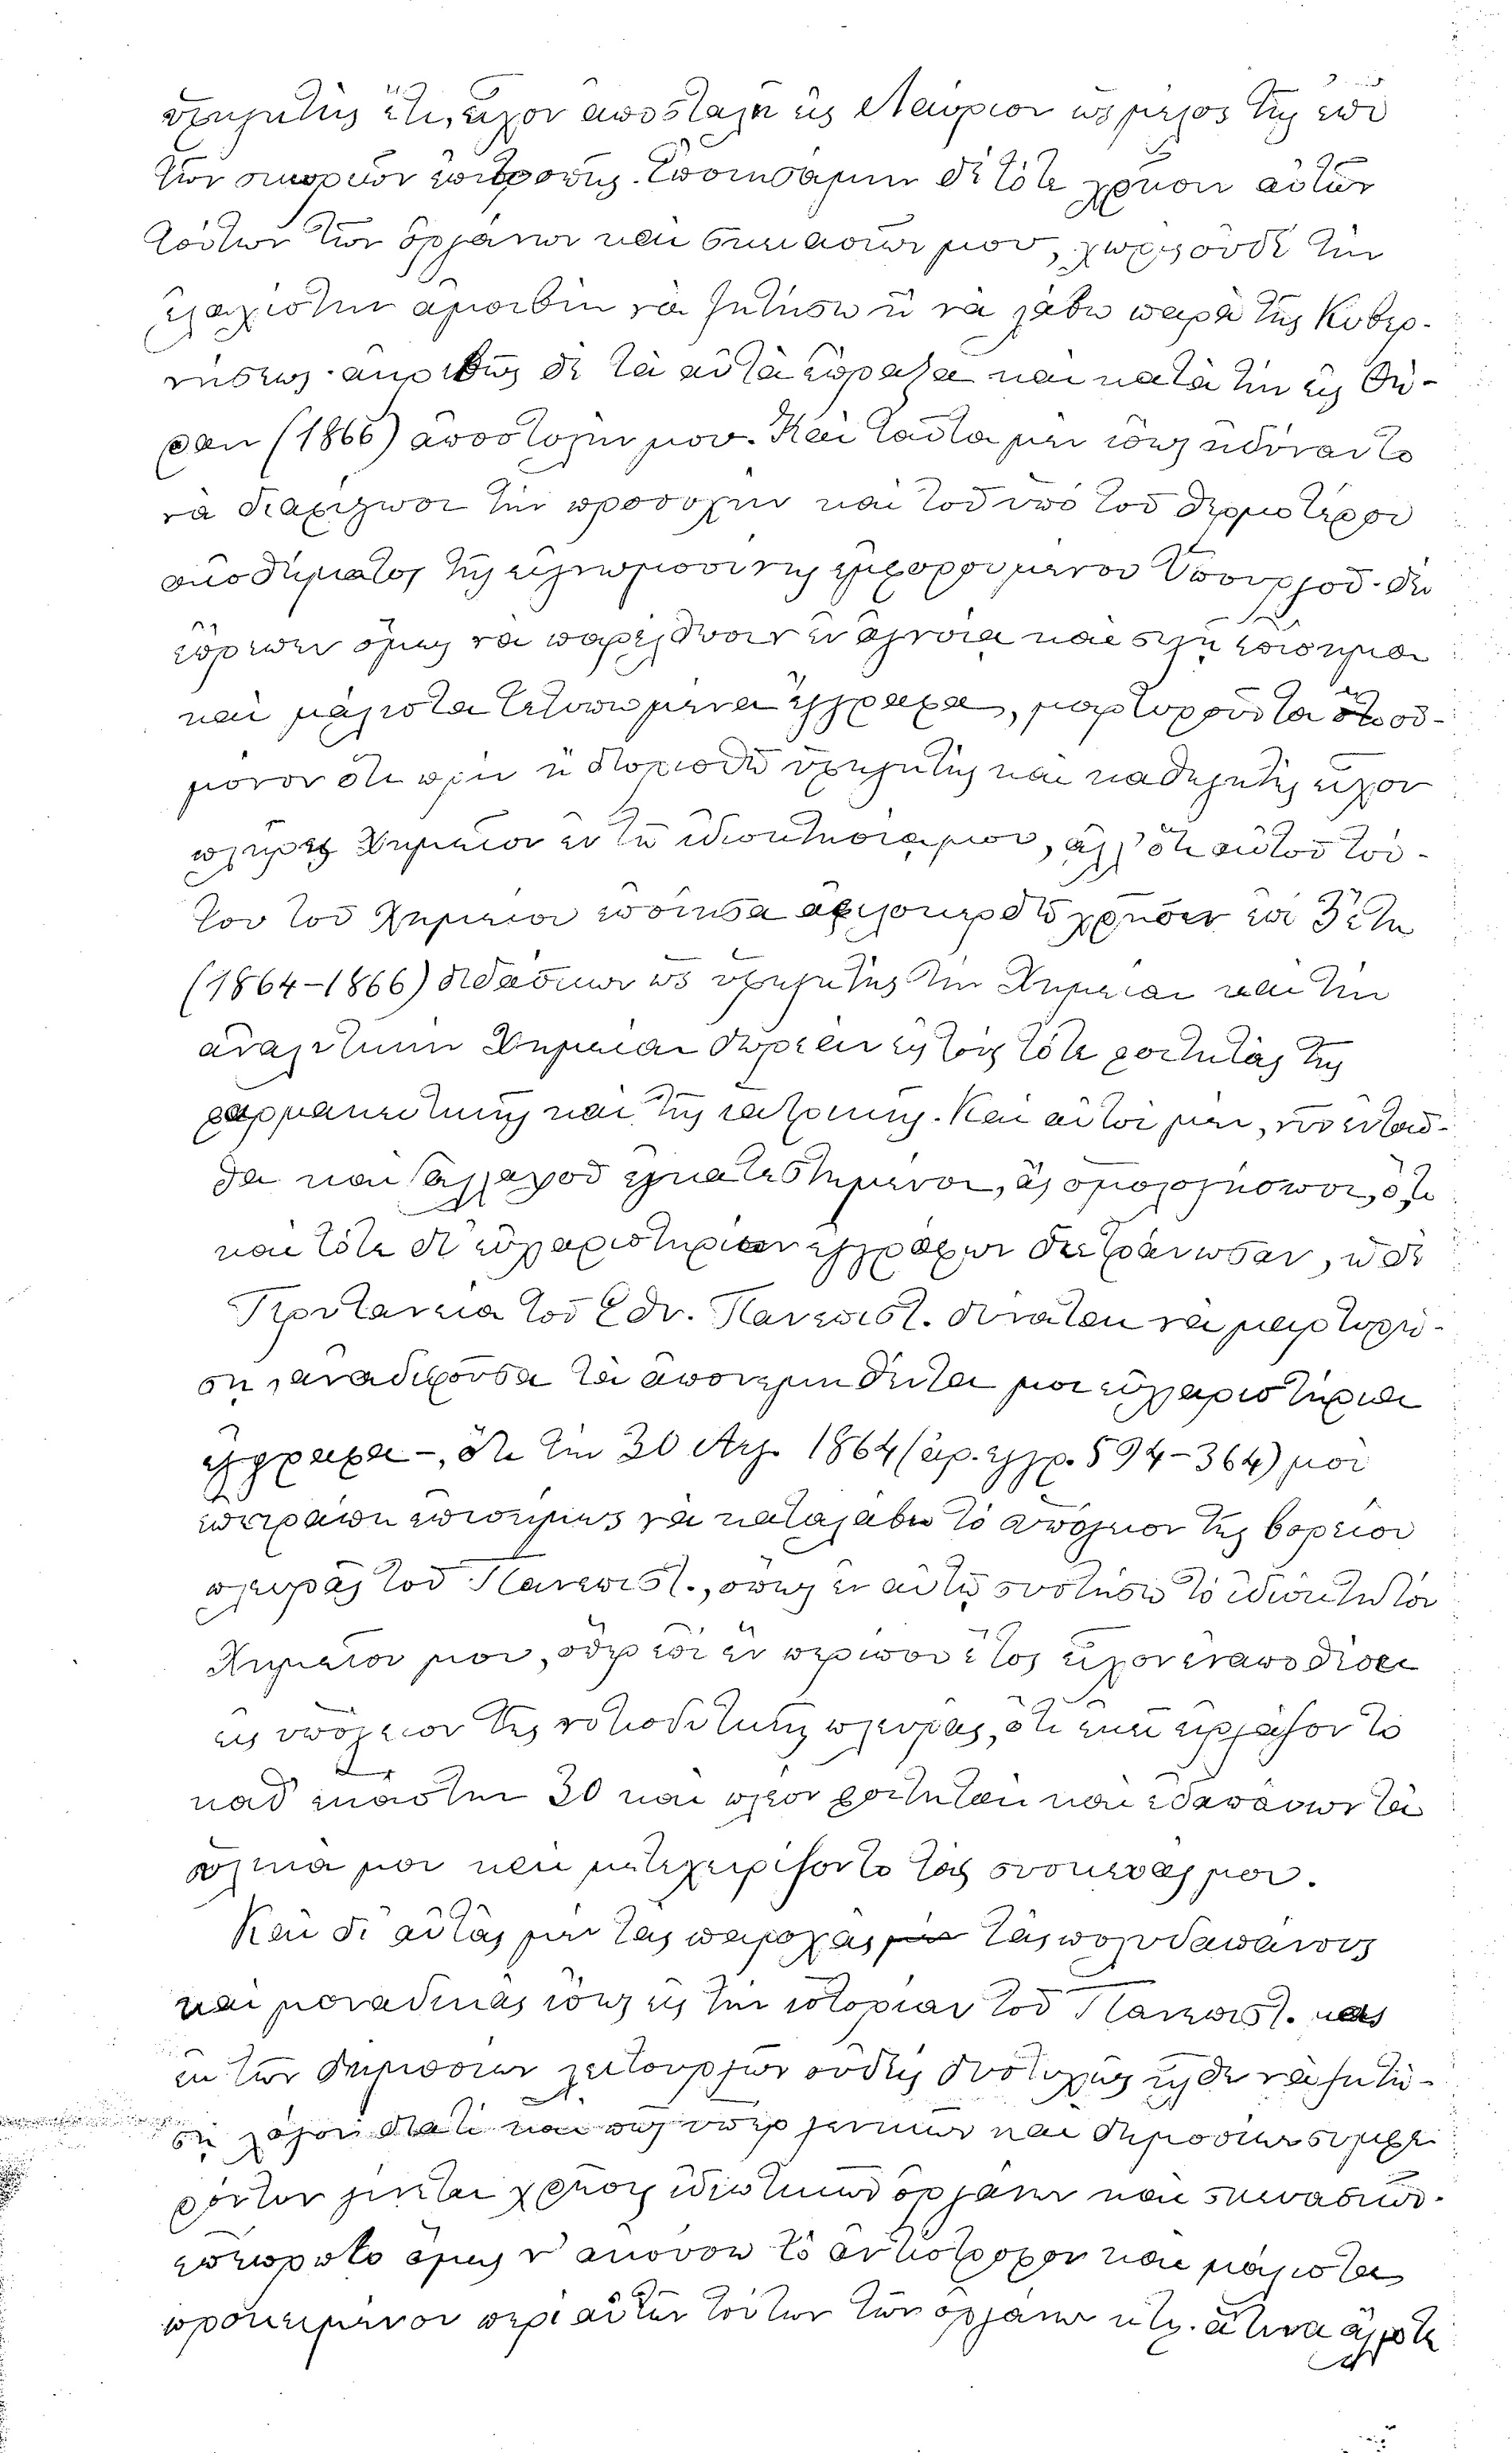 ὑφηγητὴς ἔτι, εἶχον ἀποσταλῆ εἰς Λαύριον ὡς μέλος τῆς ἐπὶ
τῶν σκωριῶν ἐπιτροπῆς. Ἐποιησάμην δὲ τότε χρῆσιν αὐτῶν
τούτων τῶν ὀργάνων καὶ σκευασιῶν μου, χωρὶς οὐδὲ τὴν
ἐλαχίστην ἀμοιβὴν νὰ ζητήσω ἢ νὰ λάβω παρὰ τῆς Κυβερ-
νήσεως· ἀκριβῶς δὲ τὰ αὐτὰ ἔπραξα καὶ κατὰ τὴν εἰς Θή-
ραν (1866) ἀποστολήν μου. Καὶ ταῦτα μὲν ἴσως ἠδύναντο
νὰ διαφύγωσι τὴν προσοχὴν καὶ τοῦ ὑπὸ τοῦ θερμοτέρου
αἰσθήματος τῆς εὐγνωμοσύνης ἐμφορουμένου Ὑπουργοῦ· δὲν
ἔπρεπεν ὅμως νὰ παρέλθωσιν ἐν ἀγνοίᾳ καὶ σιγῇ ἐπίσημα
καὶ μάλιστα τετυπωμένα ἔγγραφα, μαρτυροῦντα ὅτι οὐ
μόνον ὅτι πρὶν ἢ διορισθῶ ὑφηγητὴς καὶ καθηγητὴς εἶχον
πλῆρες Χημεῖον ἐν τῇ ἰδιοκτησίᾳ μου, ἀλλ' ὅτι αὐτοῦ τού-
του τοῦ Χημείου ἐποίησα ἀφιλοκερδῶς χρῆσιν ἐπὶ 3 ἔτη
(1864-1866) διδάσκων ὡς ὑφηγητὴς τὴν Χημείαν καὶ τὴν
ἀναλυτικὴν Χημείαν δωρεὰν εἰς τοὺς τότε φοιτητὰς τῆς
φαρμακευτικῆς καὶ τῆς ἰατρικῆς. Καὶ αὐτοὶ μὲν, νῦν ἐνταῦ-
θα καὶ ἀλλαχοῦ ἐγκατεστημένοι, ἂς ὁμολογήσωσι, ὅ,τι
καὶ τότε δι' εὐχαριστηρίων ἐγγράφων διετράνωσαν, ἡ δὲ
Πρυτανεία τοῦ Ἐθν. Πανεπιστ. δύναται νὰ μαρτυρή-
σῃ, ἀναδιφοῦσα τὰ ἀπονεμηθέντα μοι εὐχαριστήρια
ἔγγραφα -, ὅτι τὴν 30 Αὐγ. 1864 (ἀρ. ἐγγρ. 594-364) μοὶ
ἐπετράπη ἐπισήμως νὰ καταλάβω τὸ ἀνώγειον τῆς βορείου
πλευρᾶς τοῦ Πανεπιστ., ὅπως ἐν αὐτῷ συστήσω τὸ ἰδιόκτητόν
Χημεῖόν μου, ὅπερ ἐπὶ ἓν περίπου ἔτος εἶχον ἐναποθέσει
εἰς ὑπόγειον τῆς νοτιοδυτικῆς πλευρᾶς, ὅτι ἐκεῖ εἰργάζοντο
καθ' ἑκάστην 30 καὶ πλέον φοιτηταὶ καὶ ἐδαπάνων τὰ
ὑλικά μου καὶ μετεχειρίζοντο τὰς συσκευάς μου.
Καὶ δι' αὐτὰς μὲν τὰς παροχὰς τὰς πολυδαπάνους
καὶ μοναδικὰς ἴσως εἰς τὴν ἱστορίαν τοῦ Πανεπιστ. καὶ
ἐν τῶν δημοσίων λειτουργῶν οὐδεὶς δυστυχῶς ἦλθε νὰ ζητή-
σῃ λόγον διατί καὶ πῶς ὑπὲρ γενικῶν καὶ δημοσίων συμφε-
ρόντων γίνεται χρῆσις ἰδιωτικῶν ὀργάνων καὶ σκευασιῶν·
ἐπέπρωτο ὅμως ν' ἀκούσω τὸ ἀντίστροφον καὶ μάλιστα
προκειμένου περὶ αὐτῶν τούτων τῶν ὀργάνων κτλ. ἅτινα ἄλλοτε